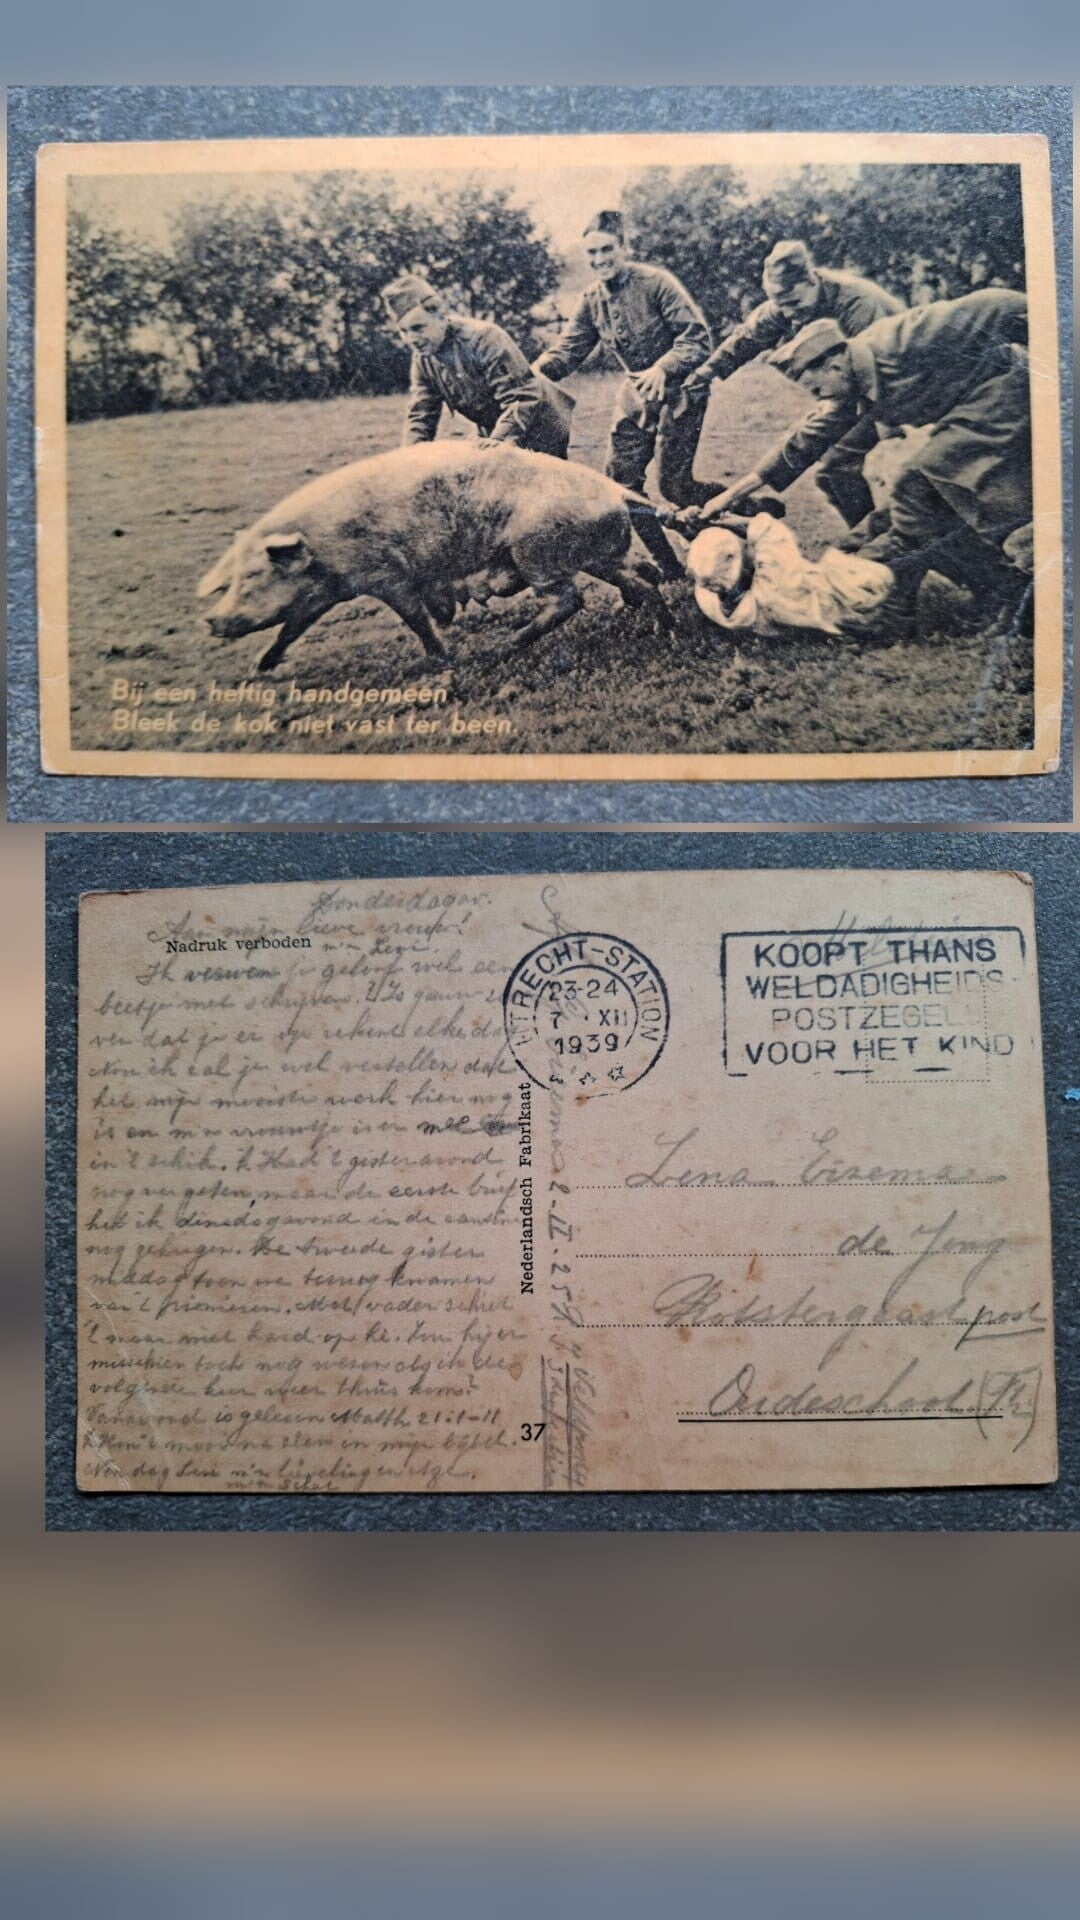 Bij een heftig handgemeen
Bleek de kok niet vast ter been.
Donderdagav.
Aan mijn lieve vrouw!
Nadruk verboden
m'n Leni.
Ik verwen je geloof wel een
beetje met schrijven. 't Is gauw zo
ver dat je er op rekent elke dag
Nou ik zal je wel vertellen dat
het mijn mooiste werk hier nog
is en m'n vrouwtje is er
in 't schik. Ik Had 't gisteravond
nog vergeten, maar de eerste brief
heb ik dinsdagavond in de cantine
nog gekregen. De tweede gister
middag toen we terug kwamen
van 't pionieren. vader schiet
't maar niet hard op hè. Zou hij er
misschien toch nog wezen als ik de
volgende keer weer thuis kom?
Vanavond is gelezen Matth 21:1-11
mooi in mijn bijbel.
Nou dag Leni m'n lieveling
m'n schat
UTRECHT-STATION
23-24
7 XII
1939
KOOPT THANS
WELDADIGHEIDS
POSTZEGEL
VOOR HET KIND
Nederlandsch Fabrikaat
37
2-II-25 R.
Veldpost
Lena Eizema
de Jong
Rotstergaast post
Oudeschoot (Fr.)